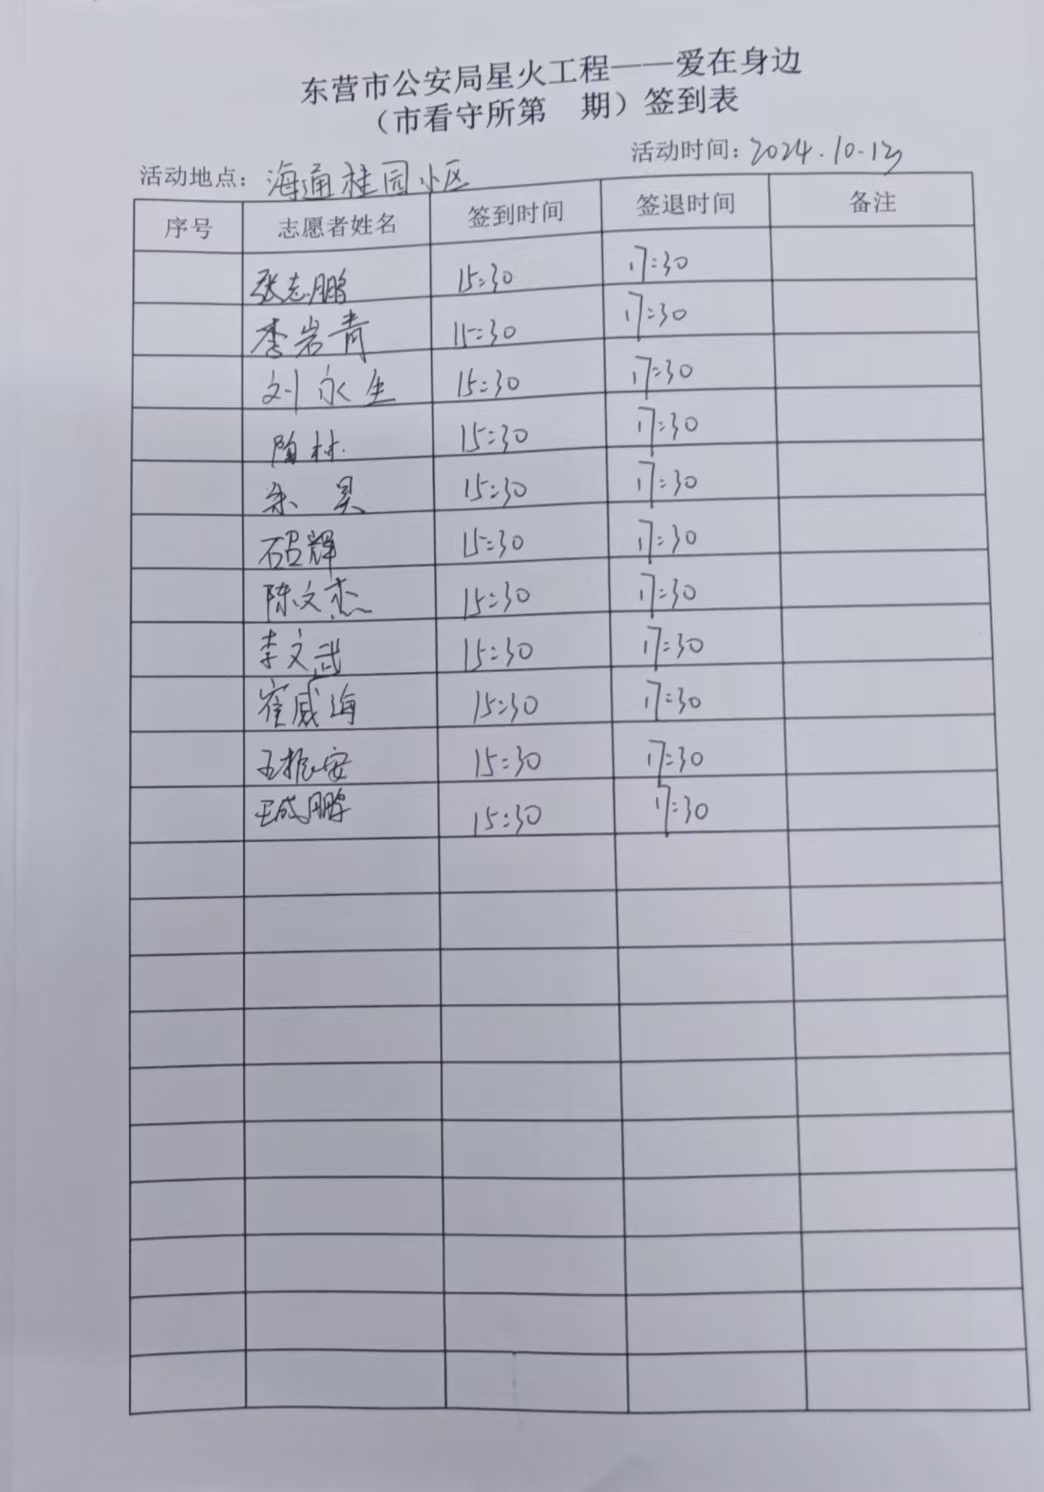 东营市公安局星火工程——爱在身边
（市看守所第 期）签到表
活动地点：海通桂园小区 活动时间：2024.10.13
序号 志愿者姓名 签到时间 签退时间 备注
张志鹏 15:30 17:30
李岩青 15:30 17:30
刘永生 15:30 17:30
陶林 15:30 17:30
朱昊 15:30 17:30
石召辉 15:30 17:30
陈文杰 15:30 17:30
李文武 15:30 17:30
崔威海 15:30 17:30
王振安 15:30 17:30
王成鹏 15:30 17:30